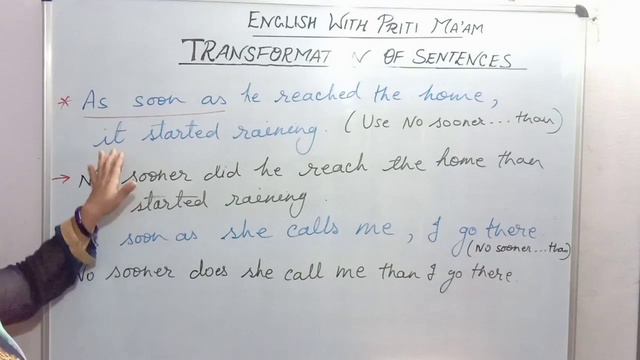 ENGLISH WITH PRITI MA'AM
TRANSFORMAT N OF SENTENCES
* As soon as he reached the home,
it started raining. (Use No sooner...than)
→ N sooner did he reach the home than
started raining.
soon as she calls me, I go there
(No sooner...than)
No sooner does she call me than I go there.